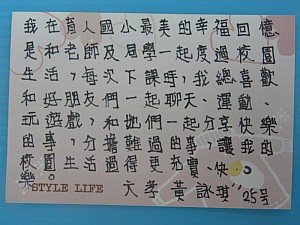 我在育人國小最美的幸福回憶
是和老師及同學一起度過校園
生活，每次下課時，我總喜歡
和好朋友們一起聊天、運動、
玩遊戲，和他們一起分享快樂
的事，分擔難過的事，讓我的
校園生活過得更充實、快
樂。
STYLE LIFE 六孝 黃詠 25号